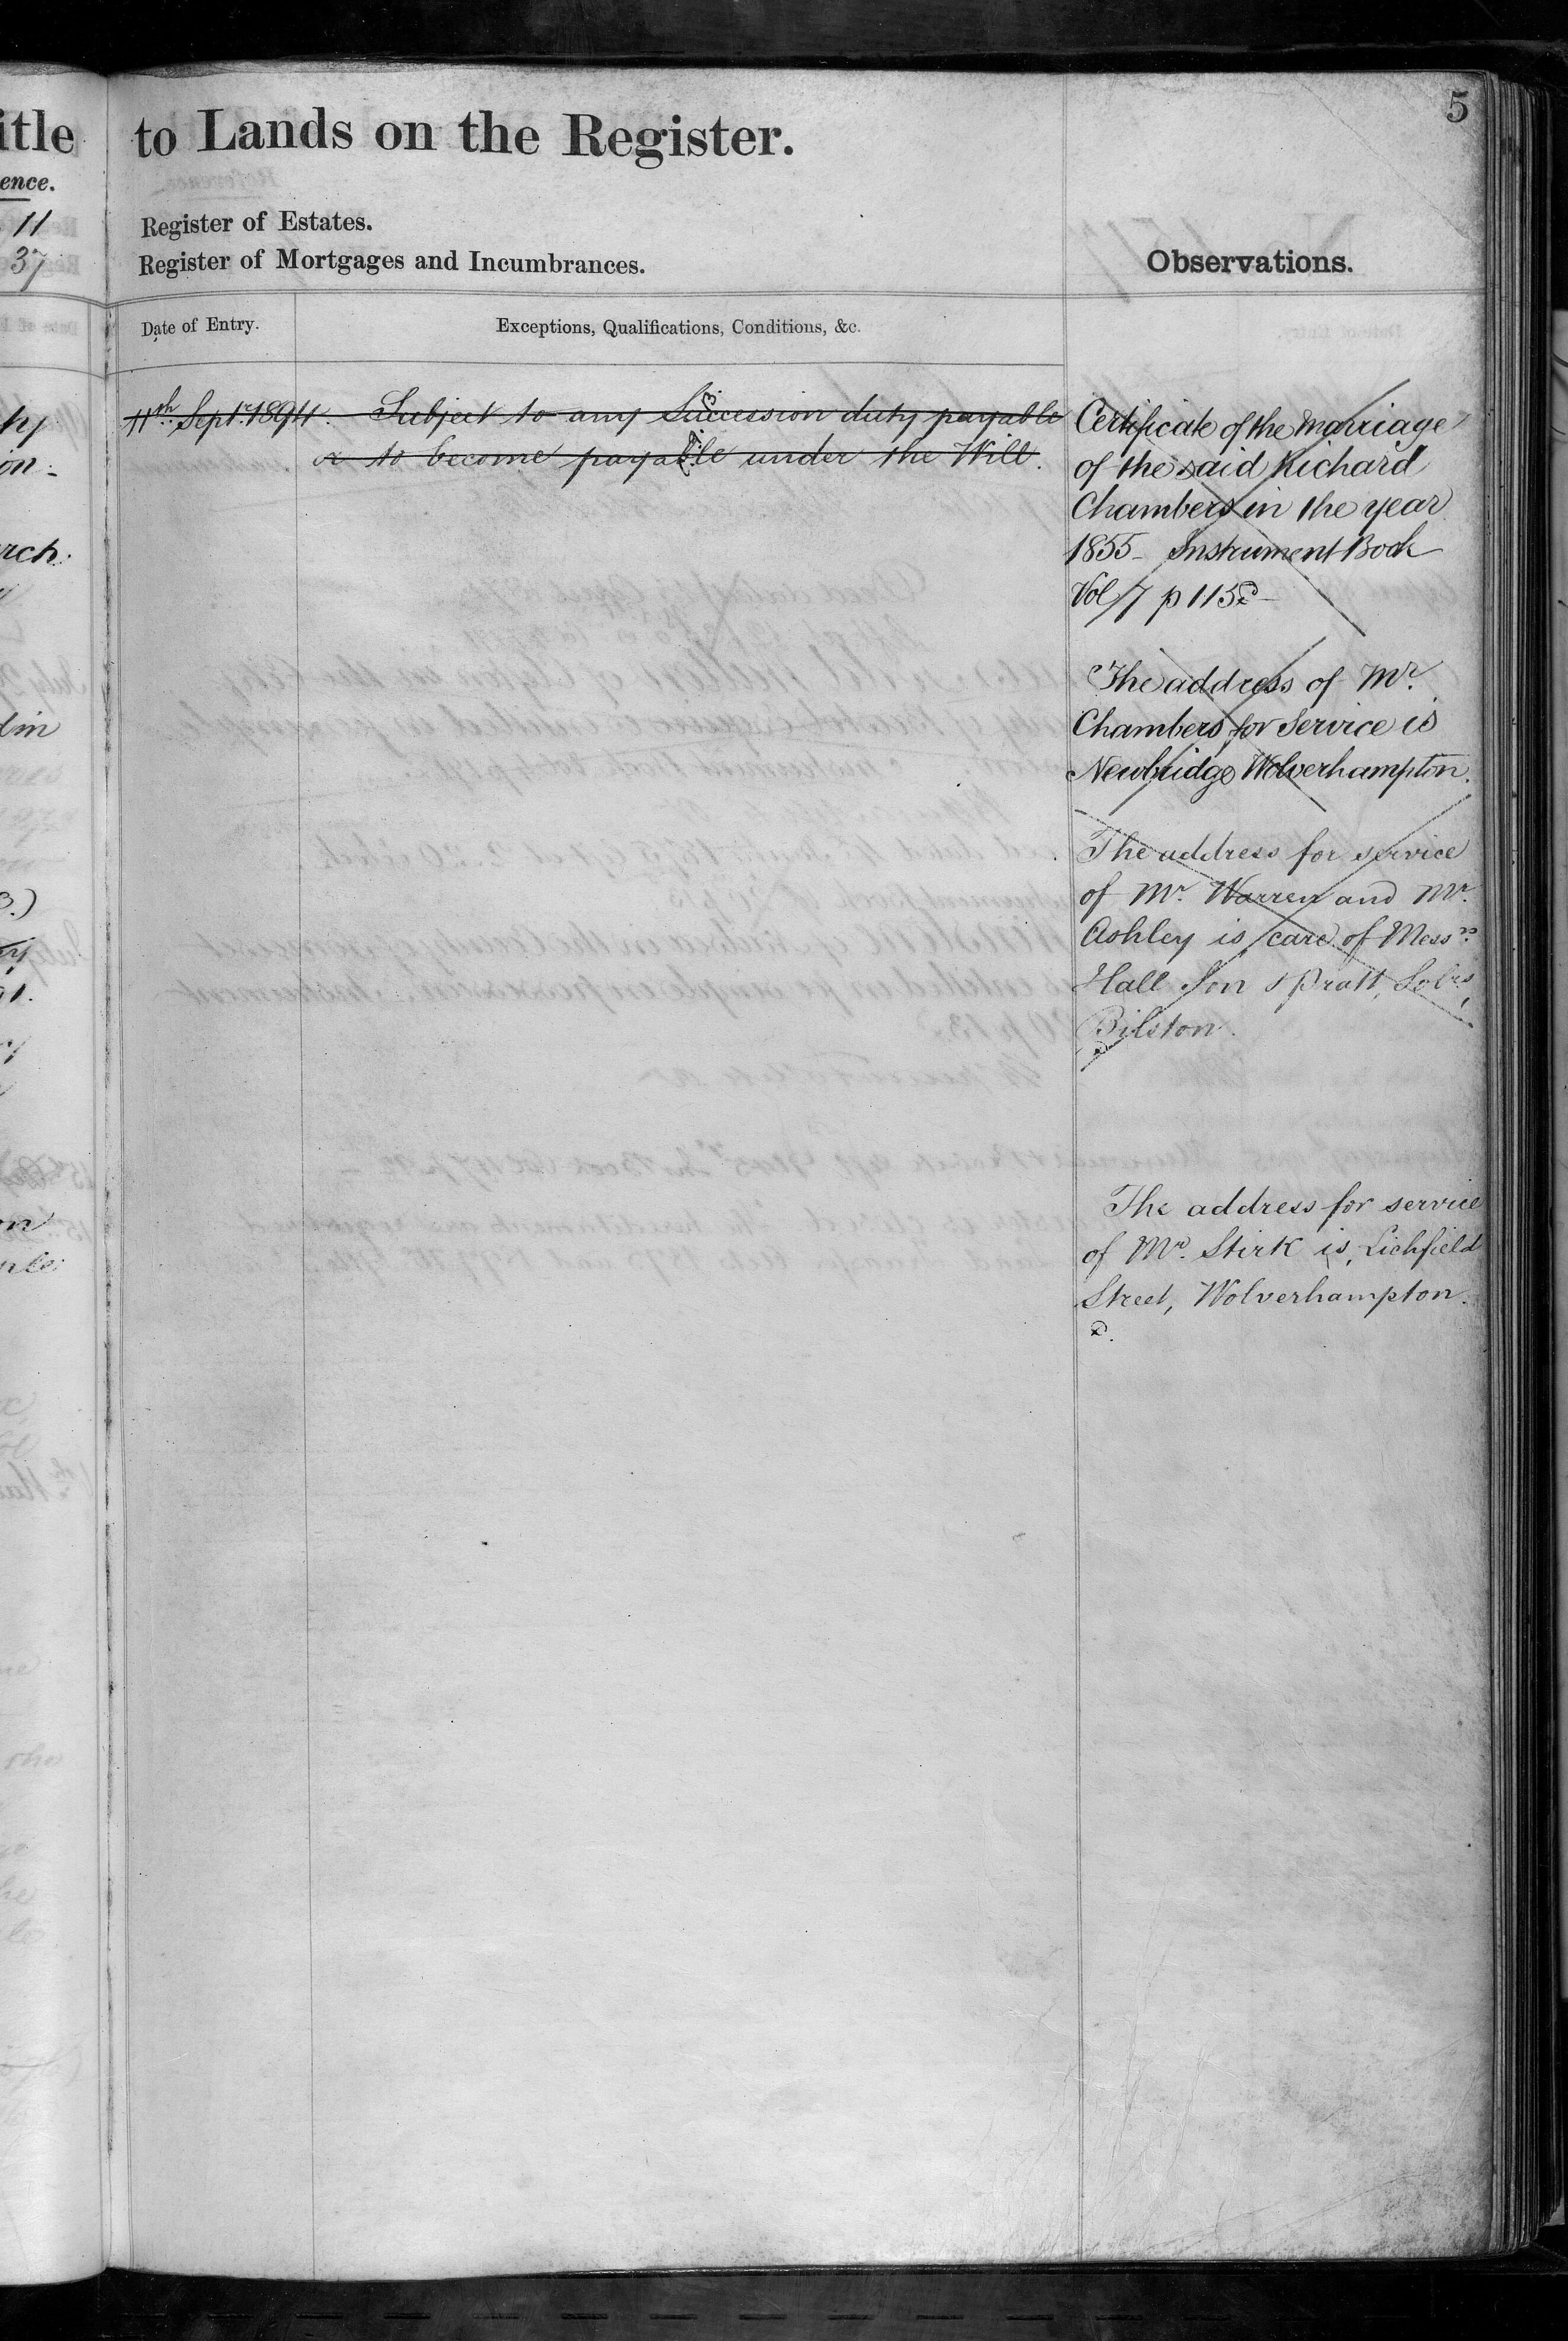 5
itle
to Lands on the Register.
ence.
11
Register of Estates.
37
Register of Mortgages and Incumbrances.
Observations.
Date of Entry.
Exceptions, Qualifications, Conditions, &c.
11th Septr. 1894. Subject to any Succession duty payable
or to become payable under the Will.
Certificate of the marriage
of the said Richard
Chambers in the year
1855 - Instrument Book
Vol 7 p 115
The address of Mr.
Chambers for Service is
Newbridge Wolverhampton.
The address for service
of Mr. Warren and Mr.
Ashley is care of Messrs.
Hall Son & Pratt, Solrs,
Bilston.
The address for service
of Mr. Stirk is, Lichfield
Street, Wolverhampton.